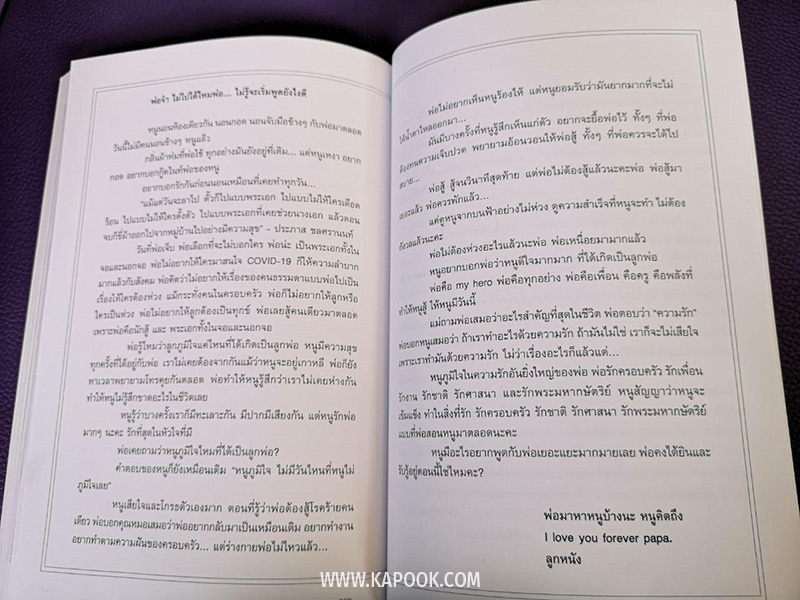 พ่อจ๋า ไม่ไปได้ไหมพ่อ... ไม่รู้จะเริ่มพูดยังไงดี
หนูนอนห้องเดียวกัน นอนกอด นอนจับมือข้างๆ กับพ่อมาตลอด
วันนี้ไม่มีคนนอนข้างๆ หนูแล้ว
กลิ่นผ้าห่มที่พ่อใช้ ทุกอย่างมันยังอยู่ที่เดิม... แต่หนูเหงา อยาก
กอด อยากบอกกู๊ดไนท์พ่อของหนู
อยากบอกรักกันก่อนนอนเหมือนที่เคยทำทุกวัน...
"แม้แต่วันจะลาไป ตั้วก็ไปแบบพระเอก ไปแบบไม่ให้ใครเดือด
ร้อน ไปแบบไม่ให้ใครตั้งตัว ไปแบบพระเอกที่เคยช่วยนางเอก แล้วตอน
จบก็ขี่ม้าออกไปจากหมู่บ้านไปอย่างมีความสุข" - ประภาส ชลศรานนท์
วันที่พ่อเจ็บ พ่อเลือกที่จะไม่บอกใคร พ่อน่ะ เป็นพระเอกทั้งใน
จอและนอกจอ พ่อไม่อยากให้ใครมาสนใจ COVID-19 ก็ให้ความลำบาก
มากแล้วกับสังคม พ่อคิดว่าไม่อยากให้เรื่องของคนธรรมดาแบบพ่อไปเป็น
เรื่องให้ใครต้องห่วง แม้กระทั่งคนในครอบครัว พ่อก็ไม่อยากให้ลูกหรือ
ใครเป็นห่วง พ่อไม่อยากให้ลูกต้องเป็นทุกข์ พ่อเลยสู้คนเดียวมาตลอด
เพราะพ่อคือนักสู้ และ พระเอกทั้งในจอและนอกจอ
พ่อรู้ไหมว่าลูกภูมิใจแค่ไหนที่ได้เกิดเป็นลูกพ่อ หนูมีความสุข
ทุกครั้งที่ได้อยู่กับพ่อ เราไม่เคยต้องจากกันแม้ว่าหนูจะอยู่เกาหลี พ่อก็ยัง
หาเวลาพยายามโทรคุยกันตลอด พ่อทำให้หนูรู้สึกว่าเราไม่เคยห่างกัน
ทำให้หนูไม่รู้สึกขาดอะไรในชีวิตเลย
หนูรู้ว่าบางครั้งเราก็มีทะเลาะกัน มีปากมีเสียงกัน แต่หนูรักพ่อ
มากๆ นะคะ รักที่สุดในหัวใจที่มี
พ่อเคยถามว่าหนูภูมิใจไหมที่ได้เป็นลูกพ่อ?
คำตอบของหนูก็ยังเหมือนเดิม "หนูภูมิใจ ไม่มีวันไหนที่หนูไม่
ภูมิใจเลย"
หนูเสียใจและโกรธตัวเองมาก ตอนที่รู้ว่าพ่อต้องสู้โรคร้ายคน
เดียว พ่อบอกคุณหมอเสมอว่าพ่ออยากกลับมาเป็นเหมือนเดิม อยากทำงาน
อยากทำตามความฝันของครอบครัว... แต่ร่างกายพ่อไม่ไหวแล้ว...
พ่อไม่อยากเห็นหนูร้องไห้ แต่หนูยอมรับว่ามันยากมากที่จะไม่
ให้น้ำตาไหลออกมา...
มันมีบางครั้งที่หนูรู้สึกเห็นแก่ตัว อยากจะยื้อพ่อไว้ ทั้งๆ ที่พ่อ
ต้องทนความเจ็บปวด พยายามอ้อนวอนให้พ่อสู้ ทั้งๆ ที่พ่อควรจะได้ไป
สบาย...
พ่อสู้ สู้จนวินาทีสุดท้าย แต่พ่อไม่ต้องสู้แล้วนะคะพ่อ พ่อสู้มา
เยอะแล้ว พ่อควรพักแล้ว...
แค่ดูหนูจากบนฟ้าอย่างไม่ห่วง ดูความสำเร็จที่หนูจะทำ ไม่ต้อง
กังวลแล้วนะคะ
พ่อไม่ต้องห่วงอะไรแล้วนะพ่อ พ่อเหนื่อยมามากแล้ว
หนูอยากบอกพ่อว่าหนูดีใจมากมาก ที่ได้เกิดเป็นลูกพ่อ
พ่อคือ my hero พ่อคือทุกอย่าง พ่อคือเพื่อน คือครู คือพลังที่
ทำให้หนูสู้ ให้หนูมีวันนี้
แม่ถามพ่อเสมอว่าอะไรสำคัญที่สุดในชีวิต พ่อตอบว่า "ความรัก"
พ่อบอกหนูเสมอว่า ถ้าเราทำอะไรด้วยความรัก ถ้ามันไม่ใช่ เราก็จะไม่เสียใจ
เพราะเราทำมันด้วยความรัก ไม่ว่าเรื่องอะไรก็แล้วแต่...
หนูภูมิใจในความรักอันยิ่งใหญ่ของพ่อ พ่อรักครอบครัว รักเพื่อน
รักงาน รักชาติ รักศาสนา และรักพระมหากษัตริย์ หนูสัญญาว่าหนูจะ
เข้มแข็ง ทำในสิ่งที่รัก รักครอบครัว รักชาติ รักศาสนา รักพระมหากษัตริย์
แบบที่พ่อสอนหนูมาตลอดนะคะ
หนูมีอะไรอยากพูดกับพ่อเยอะแยะมากมายเลย พ่อคงได้ยินและ
รับรู้อยู่ตอนนี้ใช่ไหมคะ?
พ่อมาหาหนูบ้างนะ หนูคิดถึง
I love you forever papa.
ลูกหนัง
WWW.KAPOOK.COM